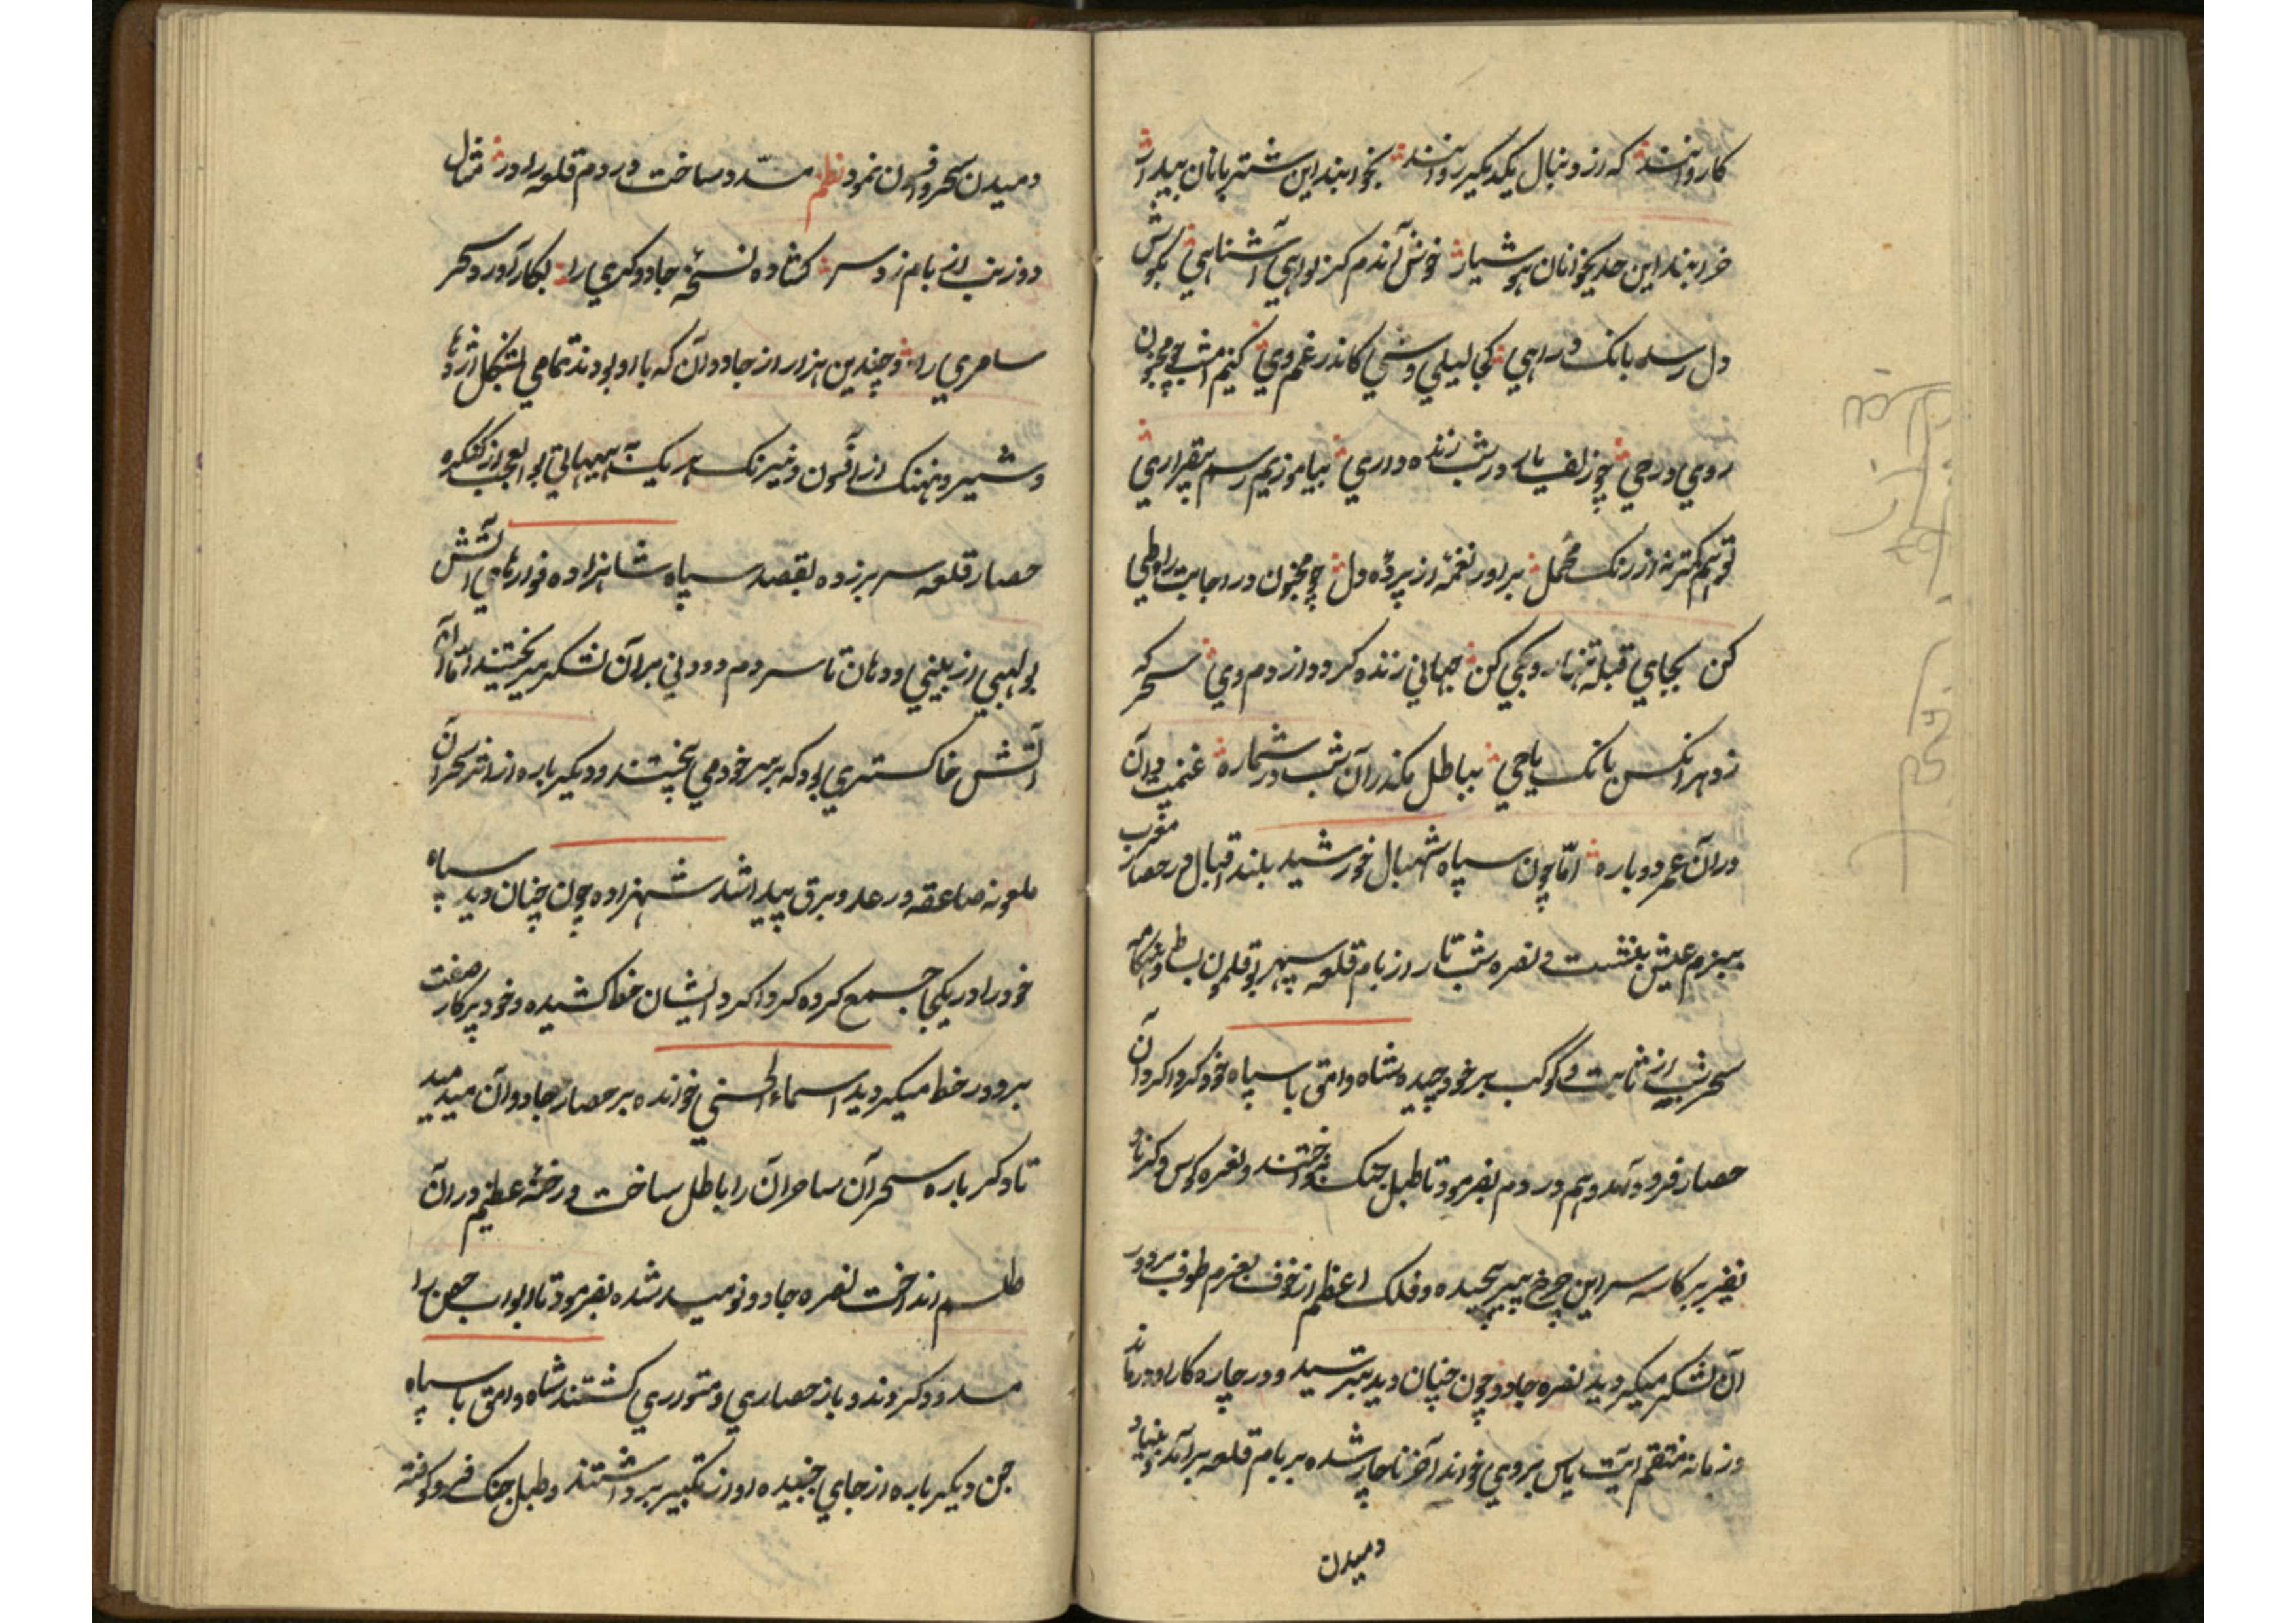 کاروانند که از دنبال یکدیگر روانند بخوابند این شتربانان بیدار
خرابند این حدیخوانان هوشیار خوش آندم کز نواهی آشناهی بگوش
دل رسد بانک دراهی کجا لیلی وشی کاندر غم وی کنیم امشب چو مجنون
روی در حی چو زلف یار در شب زنده داری بیاموزیم رسم بیقراری
تو هم کمتر نه از زنک محمل براور نغمه از پرده دل چو مجنون در اجابت راه طی
کن بجای قبله تنها رو بحی کن جهانی زنده کردد از دم وی سحر که
زد هر انکس بانک یا حی بباطل مکذر آن شب در شماره غنمیت دان
دران عمر دوباره امّا چون سپاه شهبال خورشید بلند اقبال در حصار مغرب
ببزم عیش بنشست و نعره شب تار از بام قلعه سپهر بوقلمون بساط و هنکامه
سحر شب از ثابت و کوکب بر خود چیده شاه وامق با سپاه خود کرداکرد آن
حصار فرود آمد و هم در دم بفرمود تا طبل جنک بنواختند و نعره کوس و کرنا و
نفیر بر کاسه سر این چرخ پیر پیچیده و فلک اعظم از خوف بعزم طوف بر دور
آن لشکر میکردید نعره جادو چون چنان دید بترسید و در چاره کار او درماند
و زمانه منتقم آیت یاس بروی خواند آخر ناچار شده بر بام قلعه برآمد و بنیاد
دمیدن
دمیدن سحر و افسون نمود نظم مسدّد ساخت در دم قلعه را در مثال
دوزنب از بام زد سر کشاده نسخه جادوکری را بکار آورد سحر
سامری را و چندین هزار از جادوان که با او بودند تمامی بشکل اژدها
و شیر و نهنک از افسون و نیرنک هر یک بهیهاتی بوالعجب از کنکره
حصار قلعه سر برزده بقصد سپاه شاهزاده فوارهای آتش
بولهبی از بینی و دهان تا سردم دودنی بر آن لشکر میریختند امّا آن
آتش خاکستری بود که بر سر خود می بیختند و دیکر باره از اثر سحر آن
ملعونه صاعقه و رعد و برق پیدا شد شهزاده چون چنان دید سپاه
خود را در یکجا جمع کرده کرداکرد ایشان خط کشیده و خود پرکار صفت
بر دور خط میکردید اسماء الحسنی خوانده بر حصار جادوان میدمید
تا دکر باره سحر آن ساحران را باطل ساخت و رخنه عظیم در آن
طلسم انداخت نعره جادو نومید شده بفرمود تا ابواب حصن را
مسدود کردند و باز حصاری و متوری کشتند شاه وامق با سپاه
جن دیکر باره از جای جنبیده آواز تکبیر برداشتند و طبل جنک فرو کوفته